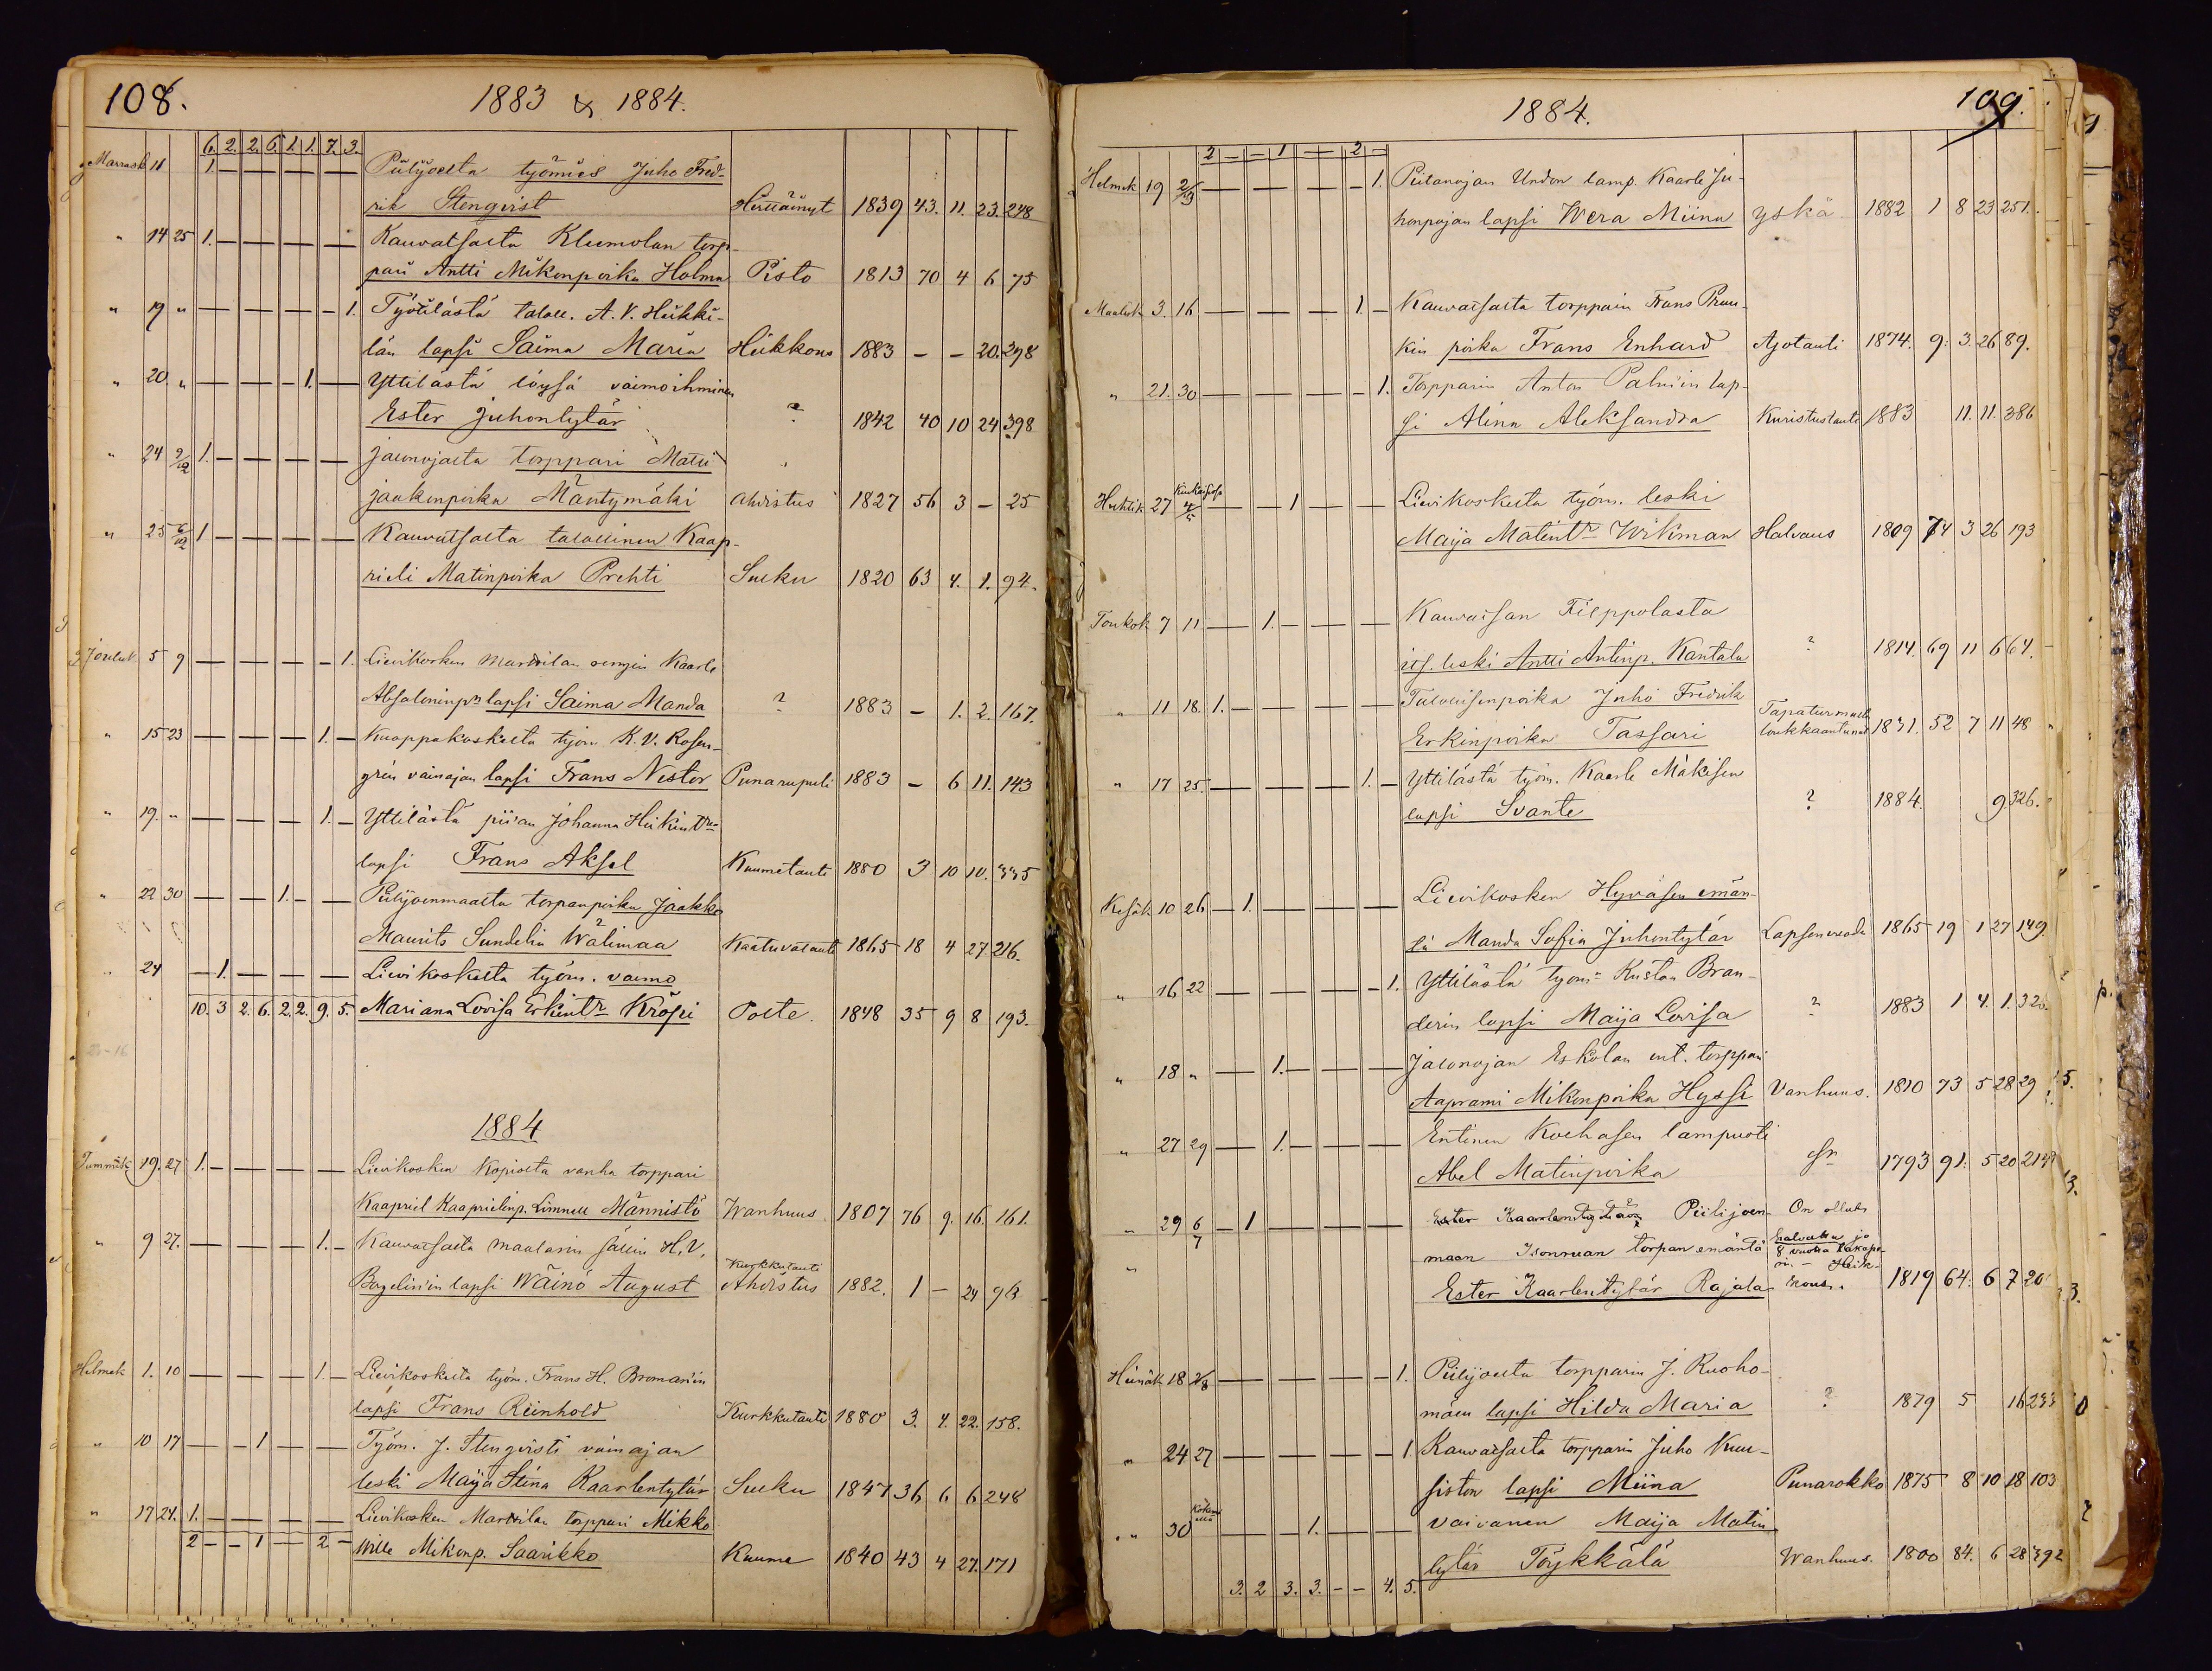 108.
1883 & 1884.
6. 2. 2. 6. 1. 1. 7. 3.
Marrask. 11 1. Piilijoelta työmies Juho Fred-
rik Stenqvist Hirttäinyt 1839 43. 11. 23. 248
" 14 25 1. Kauvatsalta Klemolan torp-
pari Antti Mikonpoika Holma Pisto 1813 70 4 6 75
" 19 " 1. Yttilästä talol. A. V. Heikki-
län lapsi Saima Maria Heikkous 1883 - - 20. 298
" 20. " 1. Yttilästä löysä vaimoihminen
Ester Juhontytär ? 1842 40 10 24 398
" 24 2/12 1. Jalonojalta torppari Matti
Jaakonpoika Mäntymäki Ahdistus 1827 56 3 - 25
" 25 6/12 1 Kauvatsalta talollinen Kaap-
rieli Matinpoika Prehti Sueku 1820 63 4. 1. 94.
Jouluk 5 9 1. Lievikosken Marttilan rengin Kaarle
Absaloninp. lapsi Saima Manda ? 1883 - 1. 2. 167.
" 15 23 1. Kuoppakoskelta työm K. V. Rosen-
grén vainajan lapsi Frans Nestor Punarupuli 1883 - 6 11. 143
" 19. " 1. Yttilästä piian Johanna Heikintr
lapsi Frans Aksel Kuumetauti 1880 3 10 10. 335
" 22 30 1. Piilijoenmaalta torpanpoika Jaakko
Maurits Sundelin Wälimaa Kaatuvatauti 1865 18 4 27. 216.
" 24 1. Lievikoskelta työm. vaimo
10. 3 2. 6. 2. 2. 9. 5. Mariana Lovisa Erkintr Kröpi Polte. 1848 35 9 8 193.
1884
Tammik 19. 27 1. Lievikosken Kopiolta vanha torppari
Kaapriel Kaaprielinp. Limnell Männistö Wanhuus 1807 76 9. 16. 161.
" 9 27. 1. Kauvatsalta maalarin sällin H. V. Kurkkutauti
Bogelin'in lapsi Wäinö August Ahdistus 1882. 1 - 24 96
Helmik 1. 10 1. Lievikoskelta työm. Frans H. Broman'in
lapsi Frans Reinhold Kurkkutauti 1880 3. 4. 22. 158.
" 10 17 1 Työm. J. Stenqvisti vainajan
leski Maija Stina Kaarlentytär Sueku 1847 36 6 6 248
" 17 24. 1. Lievikosken Marttilan torppari Mikko
2 - - 1 - 2 - Wille Mikonp. Saarikko Kuume 1840 43 4 27. 171
109.
1884.
2 - - 1 - - 2 -
Helmik 19 2/3 1. Piilanojan Undon lamp. Kaarle Ju-
honpojan lapsi Wera Miina yskä 1882 1 8 23 251.
Maalisk 3. 16 1. Kauvatsalta torpparin Frans Pruu-
kin poika Frans Enhard Ajotauti 1874. 9. 3. 26 89.
" 21. 30 1. Torpparin Anton Palmin lap-
si Alina Aleksandra Kuristustauti 1883 11. 11. 386
Huhtik 27 4/5 1 Lievikoskelta työm. leski
Maija Matintr Wikman Halvaus 1809 74 3 26 193
Toukok 7 11 1. Kauvatsan Fieppolasta
its. leski Antti Antinp. Kantala ? 1814. 69 11 6 64.
" 11 18. 1. Talollisenpoika Juho Fredrik
Erkinpoika Tassari Tapaturmalta loukkaantunut 1831. 52 7 11 48
" 17 25. 1. Yttilästä työm. Kaarle Mäkisen
lapsi Svante ? 1884. 9 326.
Kesäk 10 26 1. Lievikosken Hyväsen emän-
tä Manda Sofia Juhontytär Lapsenvuode 1865 19 1 27 149.
" 16 22 1. Yttilästä työm. Kustaa Bran-
derin lapsi Maija Lovisa ? 1883 1 4. 1. 320.
" 18 " 1. Jalonojan Eskolan ent. torppari
Aaprami Mikonpoika Hyssi Vanhuus. 1810 73 5 28 29
" 27 29 1. Entinen Koehasen lampuoti
Abel Matinpoika Sn 1793 91. 5 20 214
" 29 6/7 1 Ester Kaarlentytär Piilijoen- On ollut
maan Isonvuan torpan emäntä halvattu jo 8 vuotta takape-
Ester Kaarlentytär Rajala rin. - Heik- kous. 1819 64. 6 7 20
Heinäk 18 2/8 1. Piilijoelta torpparin J. Ruoho-
mäen lapsi Hilda Maria ? 1879 5 16 233
" 24 27 1. Kauvatsalta torpparin Juho Kuu-
siston lapsi Miina Punarokko 1875 8 10 18 103
" 30 1. vaivanen Maija Matin-
tytär Töykkälä Wanhuus. 1800 84. 6 28 392
3. 2 3. 3. - - 4. 5.